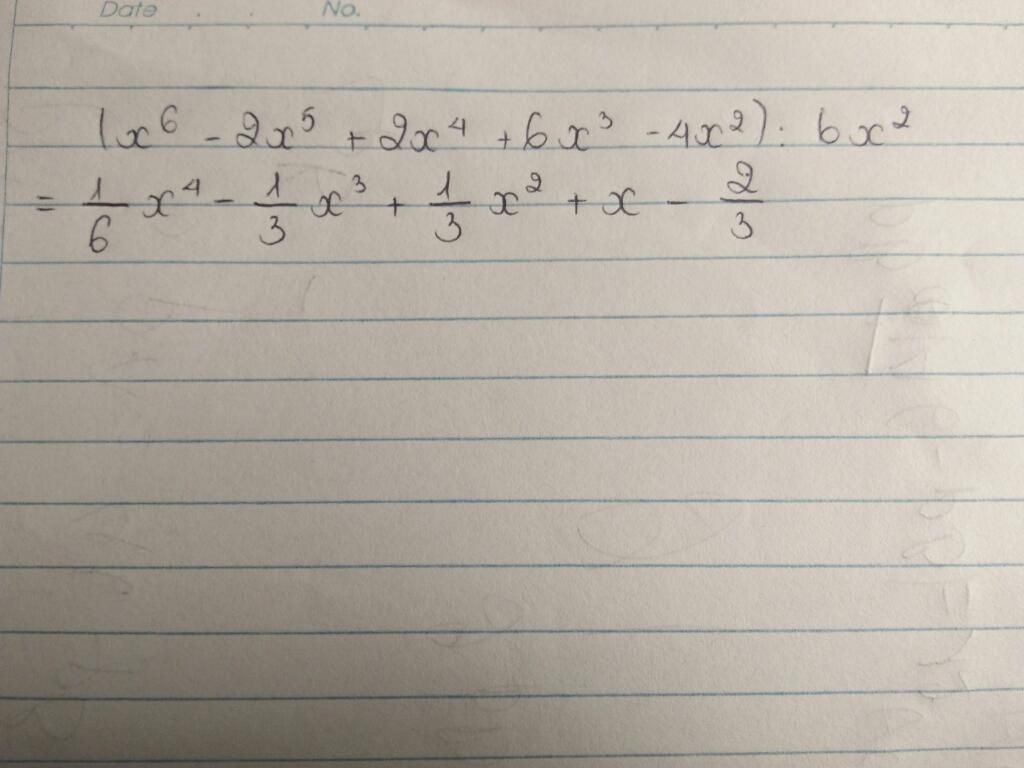 Date . . No.
(x⁶ - 2x⁵ + 2x⁴ + 6x³ - 4x²) : 6x²
= 1/6 x⁴ - 1/3 x³ + 1/3 x² + x - 2/3